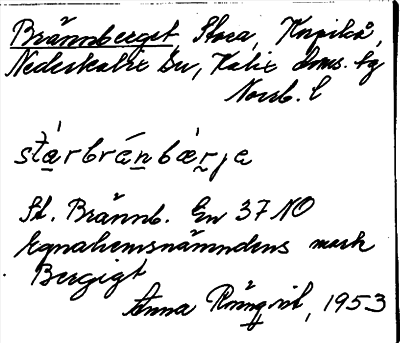 Brännberget, Stora, Kypikå,
Nederkalix Sn, Kalix doms. hg
Norrb. l
stärbränbärja
St. Brännb. En 37 NO
Egnahemsnämndens mark
Bergigt
Anna Rönqvist, 1953